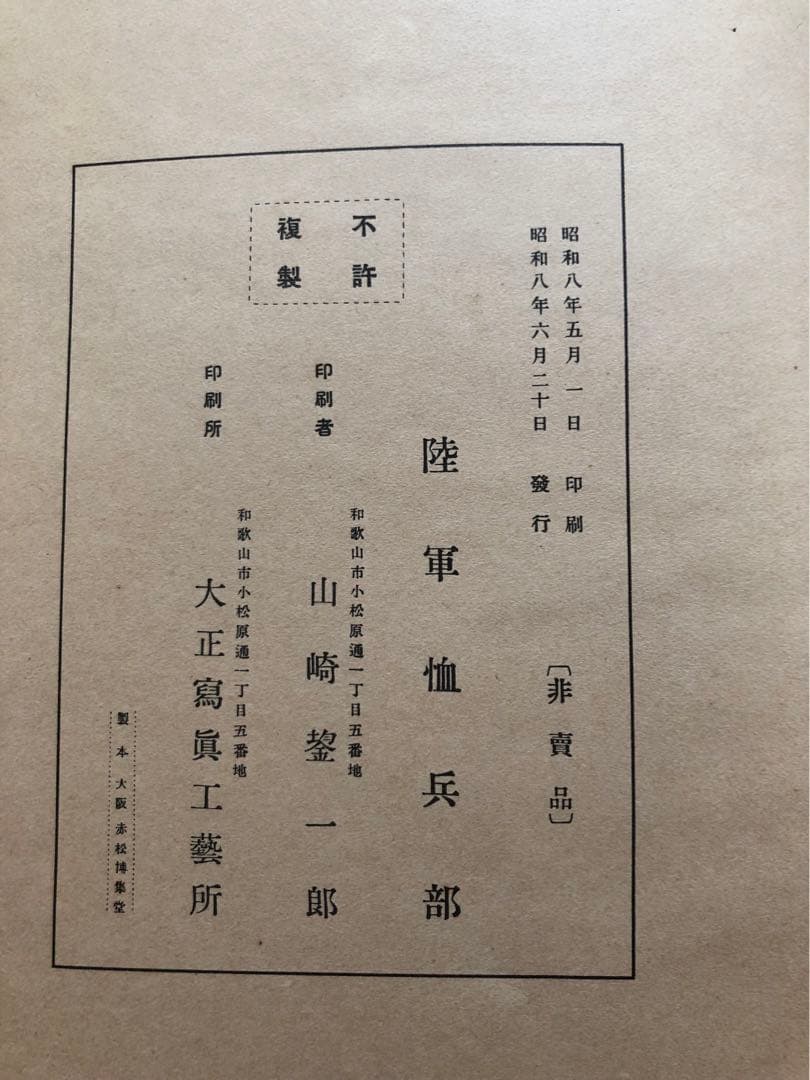 昭和八年五月一日 印刷
昭和八年六月二十日 發行
〔非賣品〕
陸軍恤兵部
不許
複製
印刷者
和歌山市小松原通一丁目五番地
山崎鋆一郎
印刷所
和歌山市小松原通一丁目五番地
大正寫眞工藝所
製本 大阪 赤松博集堂